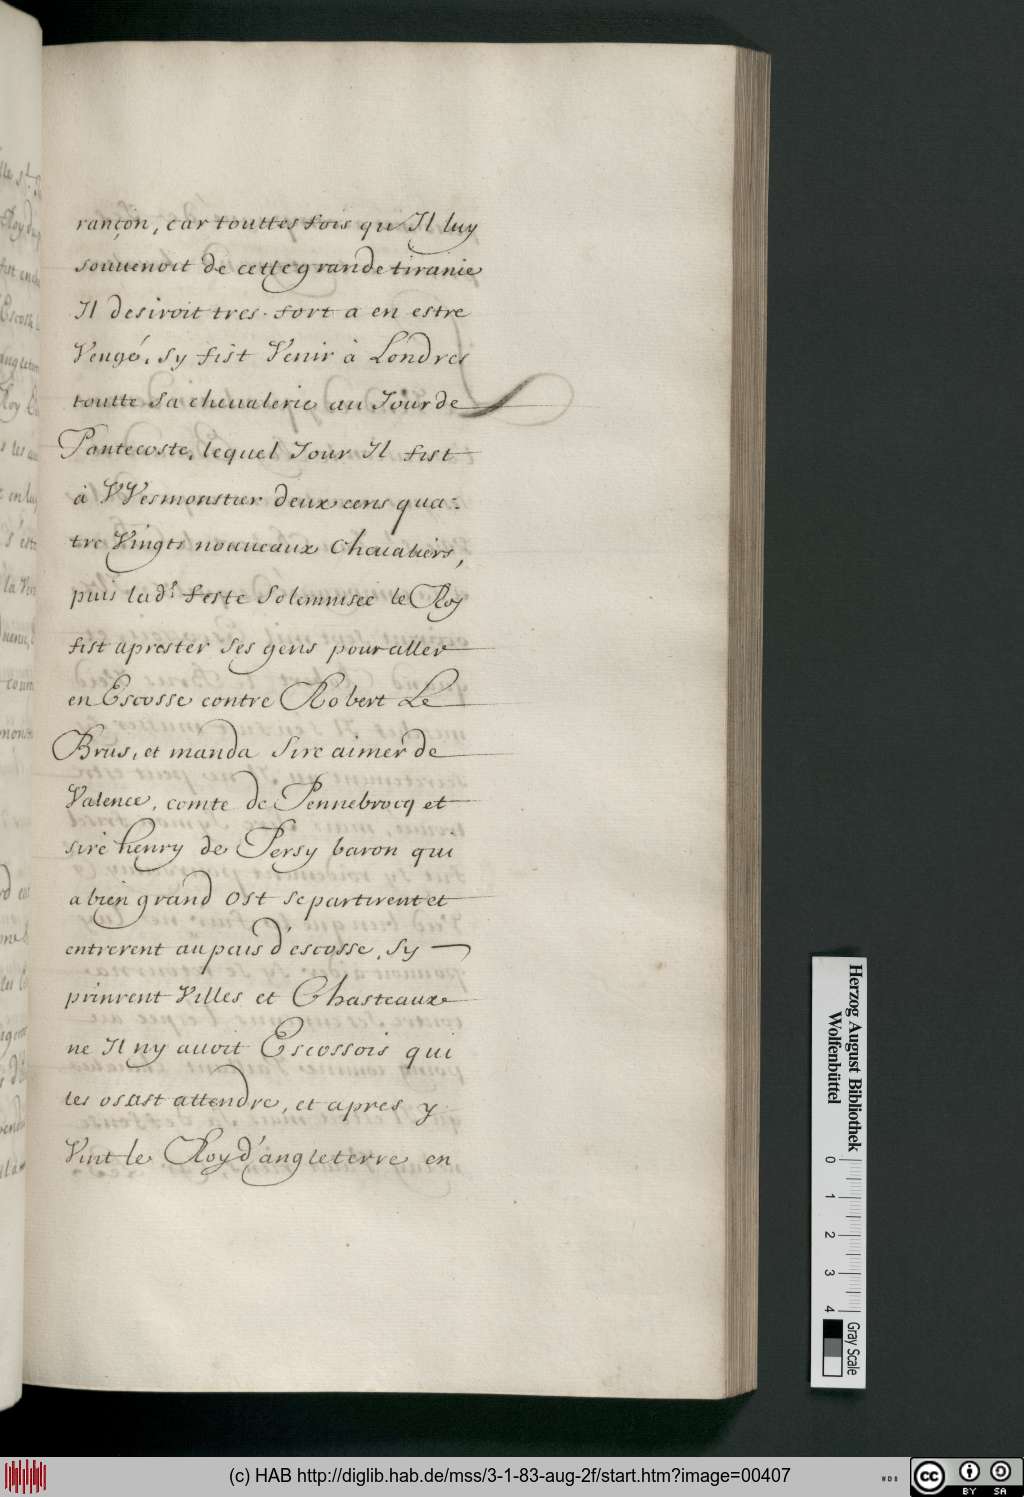 rançon, car touttes fois qu Il luy
souuenoit de cette grande tiranie
Il desiroit tres-fort a en estre
Vengé, sy fist Venir à Londres
toutte sa cheualerie au Jour de
Pantecoste, lequel Jour Il fist
à VVesmonstier deux cens qua-
tre Vingts nouueaux Cheualiers,
puis lad.^e feste solemnisée le Roy
fist aprester ses gens pour aller
en Escosse contre Robert Le
Brus, et manda Sire aimer de
Valence, comte de Pennebrocq et
sire henry de Persy baron qui
a bien grand Ost se partirent et
entrerent au pais d'escosse, sy
prinrent Villes et Chasteaux
ne Il ny auoit Escossois qui
les osast attendre, et apres y
Vint le Roy d'angleterre en
Herzog August Bibliothek
Wolfenbüttel
0 1 2 3 4
Gray Scale
(c) HAB http://diglib.hab.de/mss/3-1-83-aug-2f/start.htm?image=00407
WDB
cc BY SA